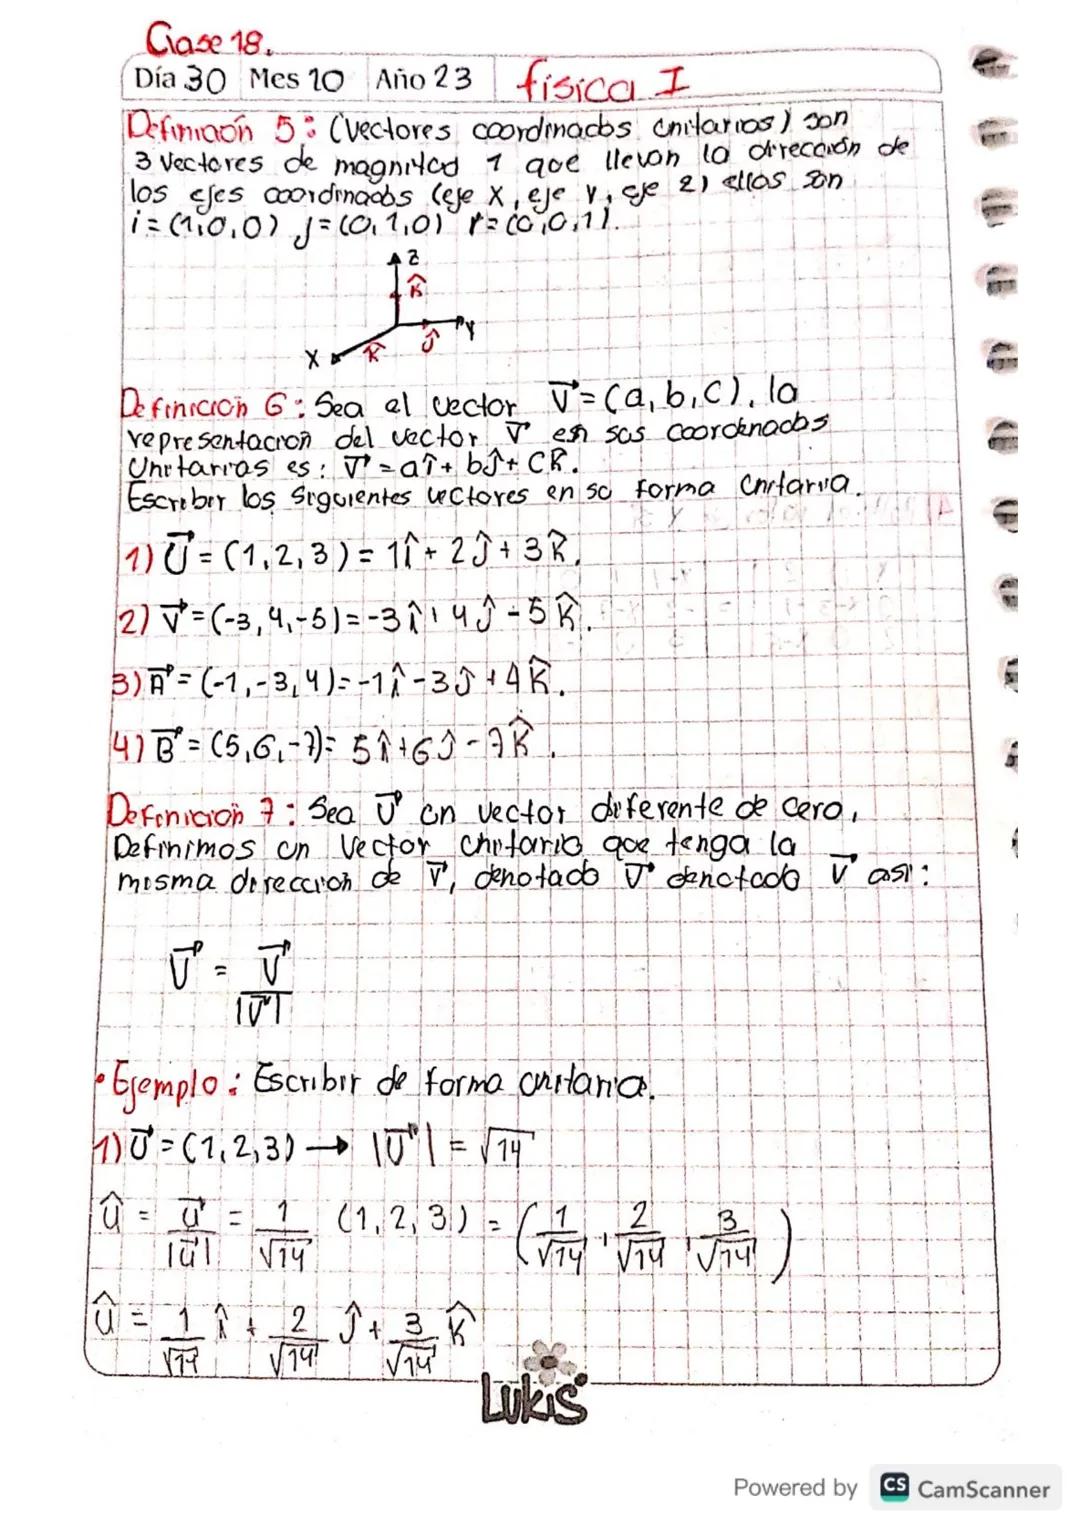 Clase 18.
Día 30 Mes 10 Año 23 física I
Definición 5: (Vectores coordinados unitarios) son
3 vectores de magnitud 1 que llevan la dirección de
los ejes coordinados (eje X, eje Y, eje Z) ellos son
i = (1,0,0) j = (0,1,0) r = (0,0,1).
Z
K̂
Y
X K̂ Ĵ
Definición 6: Sea el vector V⃗ = (a, b, c), la
representación del vector V⃗ en sus coordenados
Unitarias es: V⃗ = aî + bĵ + cK̂.
Escribir los siguientes vectores en su forma unitaria.
1) U⃗ = (1,2,3) = 1î + 2ĵ + 3K̂.
2) V⃗ = (-3,4,-5) = -3î + 4ĵ - 5K̂.
3) A⃗ = (-1,-3,4) = -1î - 3ĵ + 4K̂.
4) B⃗ = (5,6,-7) = 5î + 6ĵ - 7K̂.
Definición 7: Sea U⃗ un vector diferente de cero,
Definimos un vector unitario que tenga la
misma dirección de V⃗, denotado V⃗ denotado V⃗ así:
U⃗ = V⃗
|V⃗|
• Ejemplo: Escribir de forma unitaria.
1) U⃗ = (1,2,3) → |U⃗| = √14
û = u⃗/|u⃗| = 1/√14 (1,2,3) = (1/√14, 2/√14, 3/√14)
û = 1/√14 î + 2/√14 ĵ + 3/√14 K̂
Lukis
Powered by CS CamScanner